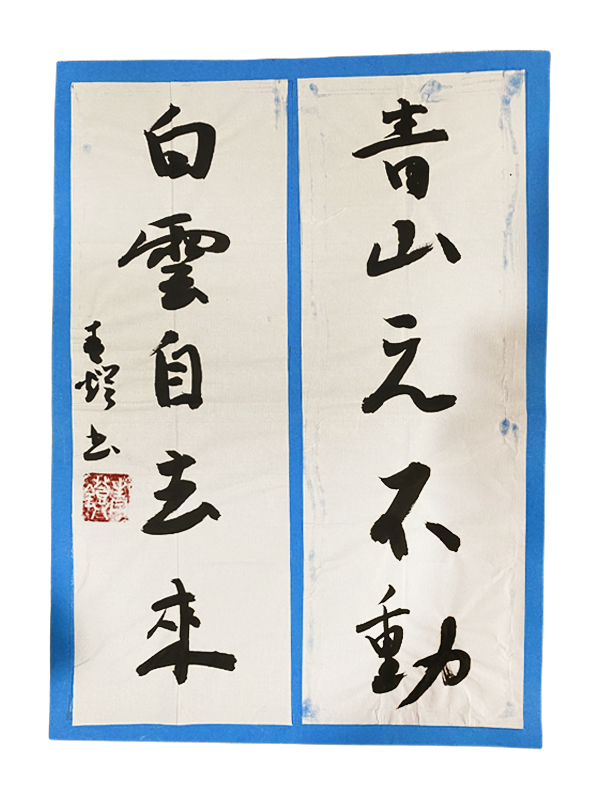 青山元不動
白雲自去来
書